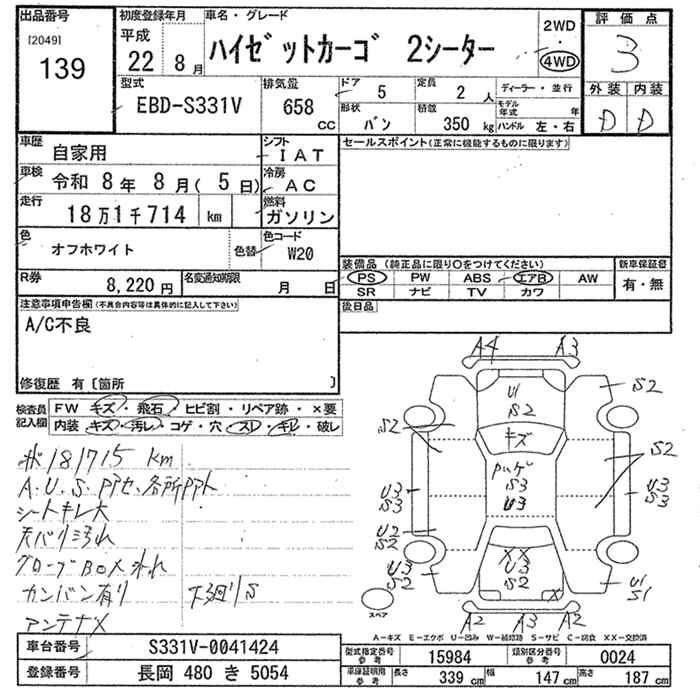 出品番号
[2049]
139
初度登録年月
平成
22 年 8 月
車名・グレード
ハイゼットカーゴ 2シーター
2WD
4WD
評価点
3
外装 内装
D D
型式
EBD-S331V
排気量
658 CC
ドア 5
定員 2 人
ディーラー・並行
形状 バン
積載 350 kg
モデル年式 年
ハンドル 左・右
車歴
自家用
シフト
IAT
セールスポイント(正常に機能するものに限ります)
車検
令和 8 年 8 月( 5 日)
冷房
AC
走行
18万1千714 km
燃料
ガソリン
色
オフホワイト
色替
色コード
W20
装備品 (純正品に限り○をつけてください)
新車保証書
PS PW ABS エアB AW
有・無
SR ナビ TV カワ
R券
8,220円
名変通知期限
月 日
後日品
注意事項申告欄(不具合内容等は具体的に記入して下さい)
A/C不良
修復歴 有〔箇所 〕
検査員記入欄
FW キズ・飛石・ヒビ割・リペア跡・×要
内装 キズ・汚レ・コゲ・穴・スレ・キレ・破レ
181715 km
A.U.S.
シートキレ大
天バリ汚れ
グローブBOX
カンバン有り
下廻りS
アンテナX
A4 A3
U1
S2
S2
キズ
S2
S2
S3
U3
U3
S3
U3
S3
U2
S2
U3
S2
XX
U3
S2
X
U1
S1
A2 A3 A2
スペア
A-キズ E-エクボ U-凹み W-補修跡 S-サビ C-腐食 XX-交換済
車台番号
S331V-0041424
登録番号
長岡 480 き 5054
型式指定番号
参考
15984
類別区分番号
参考
0024
車庫証明用
参考
長さ 339 cm
幅 147 cm
高さ 187 cm